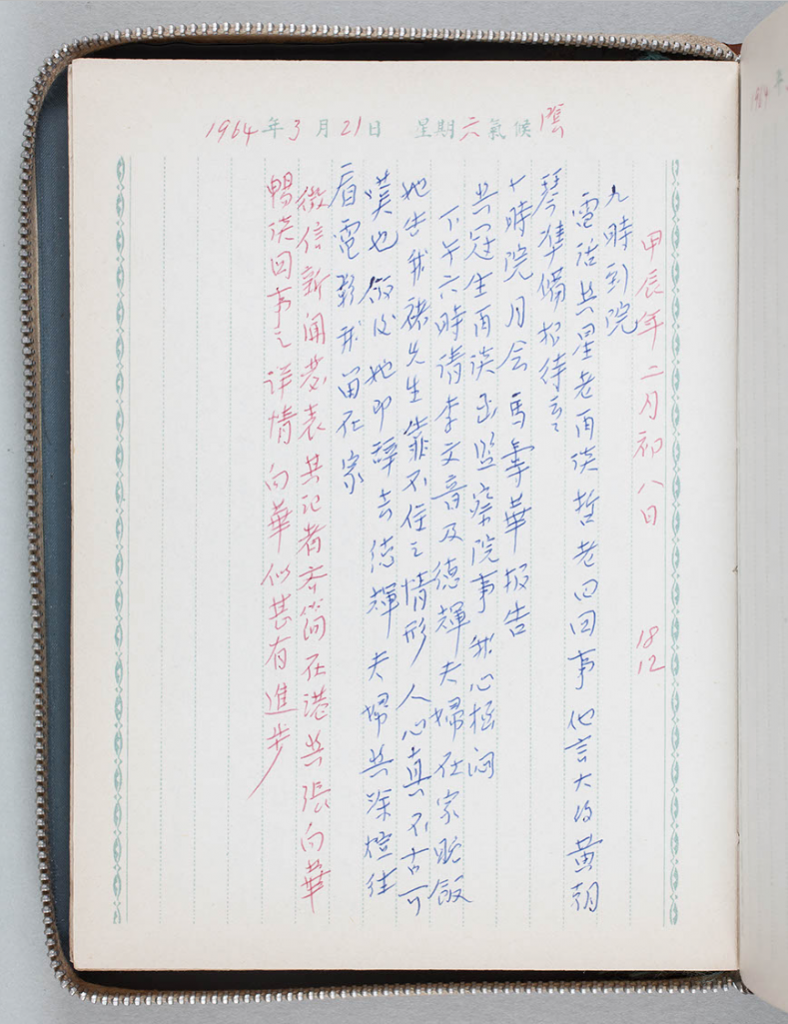 1964年3月21日 星期六氣候陰
甲辰年二月初八日 18 12
九時到院
電話共星老再談哲老回國事 他言大約黃朝
琴準備招待云
十時院月会 馬華報告
共冠生再談出監察院事 我心極悶
下午六時請李文音及德輝夫婦在家晚飯
她告我褚先生靠不住之情形 人心真不古可
嘆也 飯後她即辭去 德輝夫婦共徐檀往
看電影 我留在家
徵信新聞發表其記者在港共張向華
暢談国事之详情 向華似甚有進步